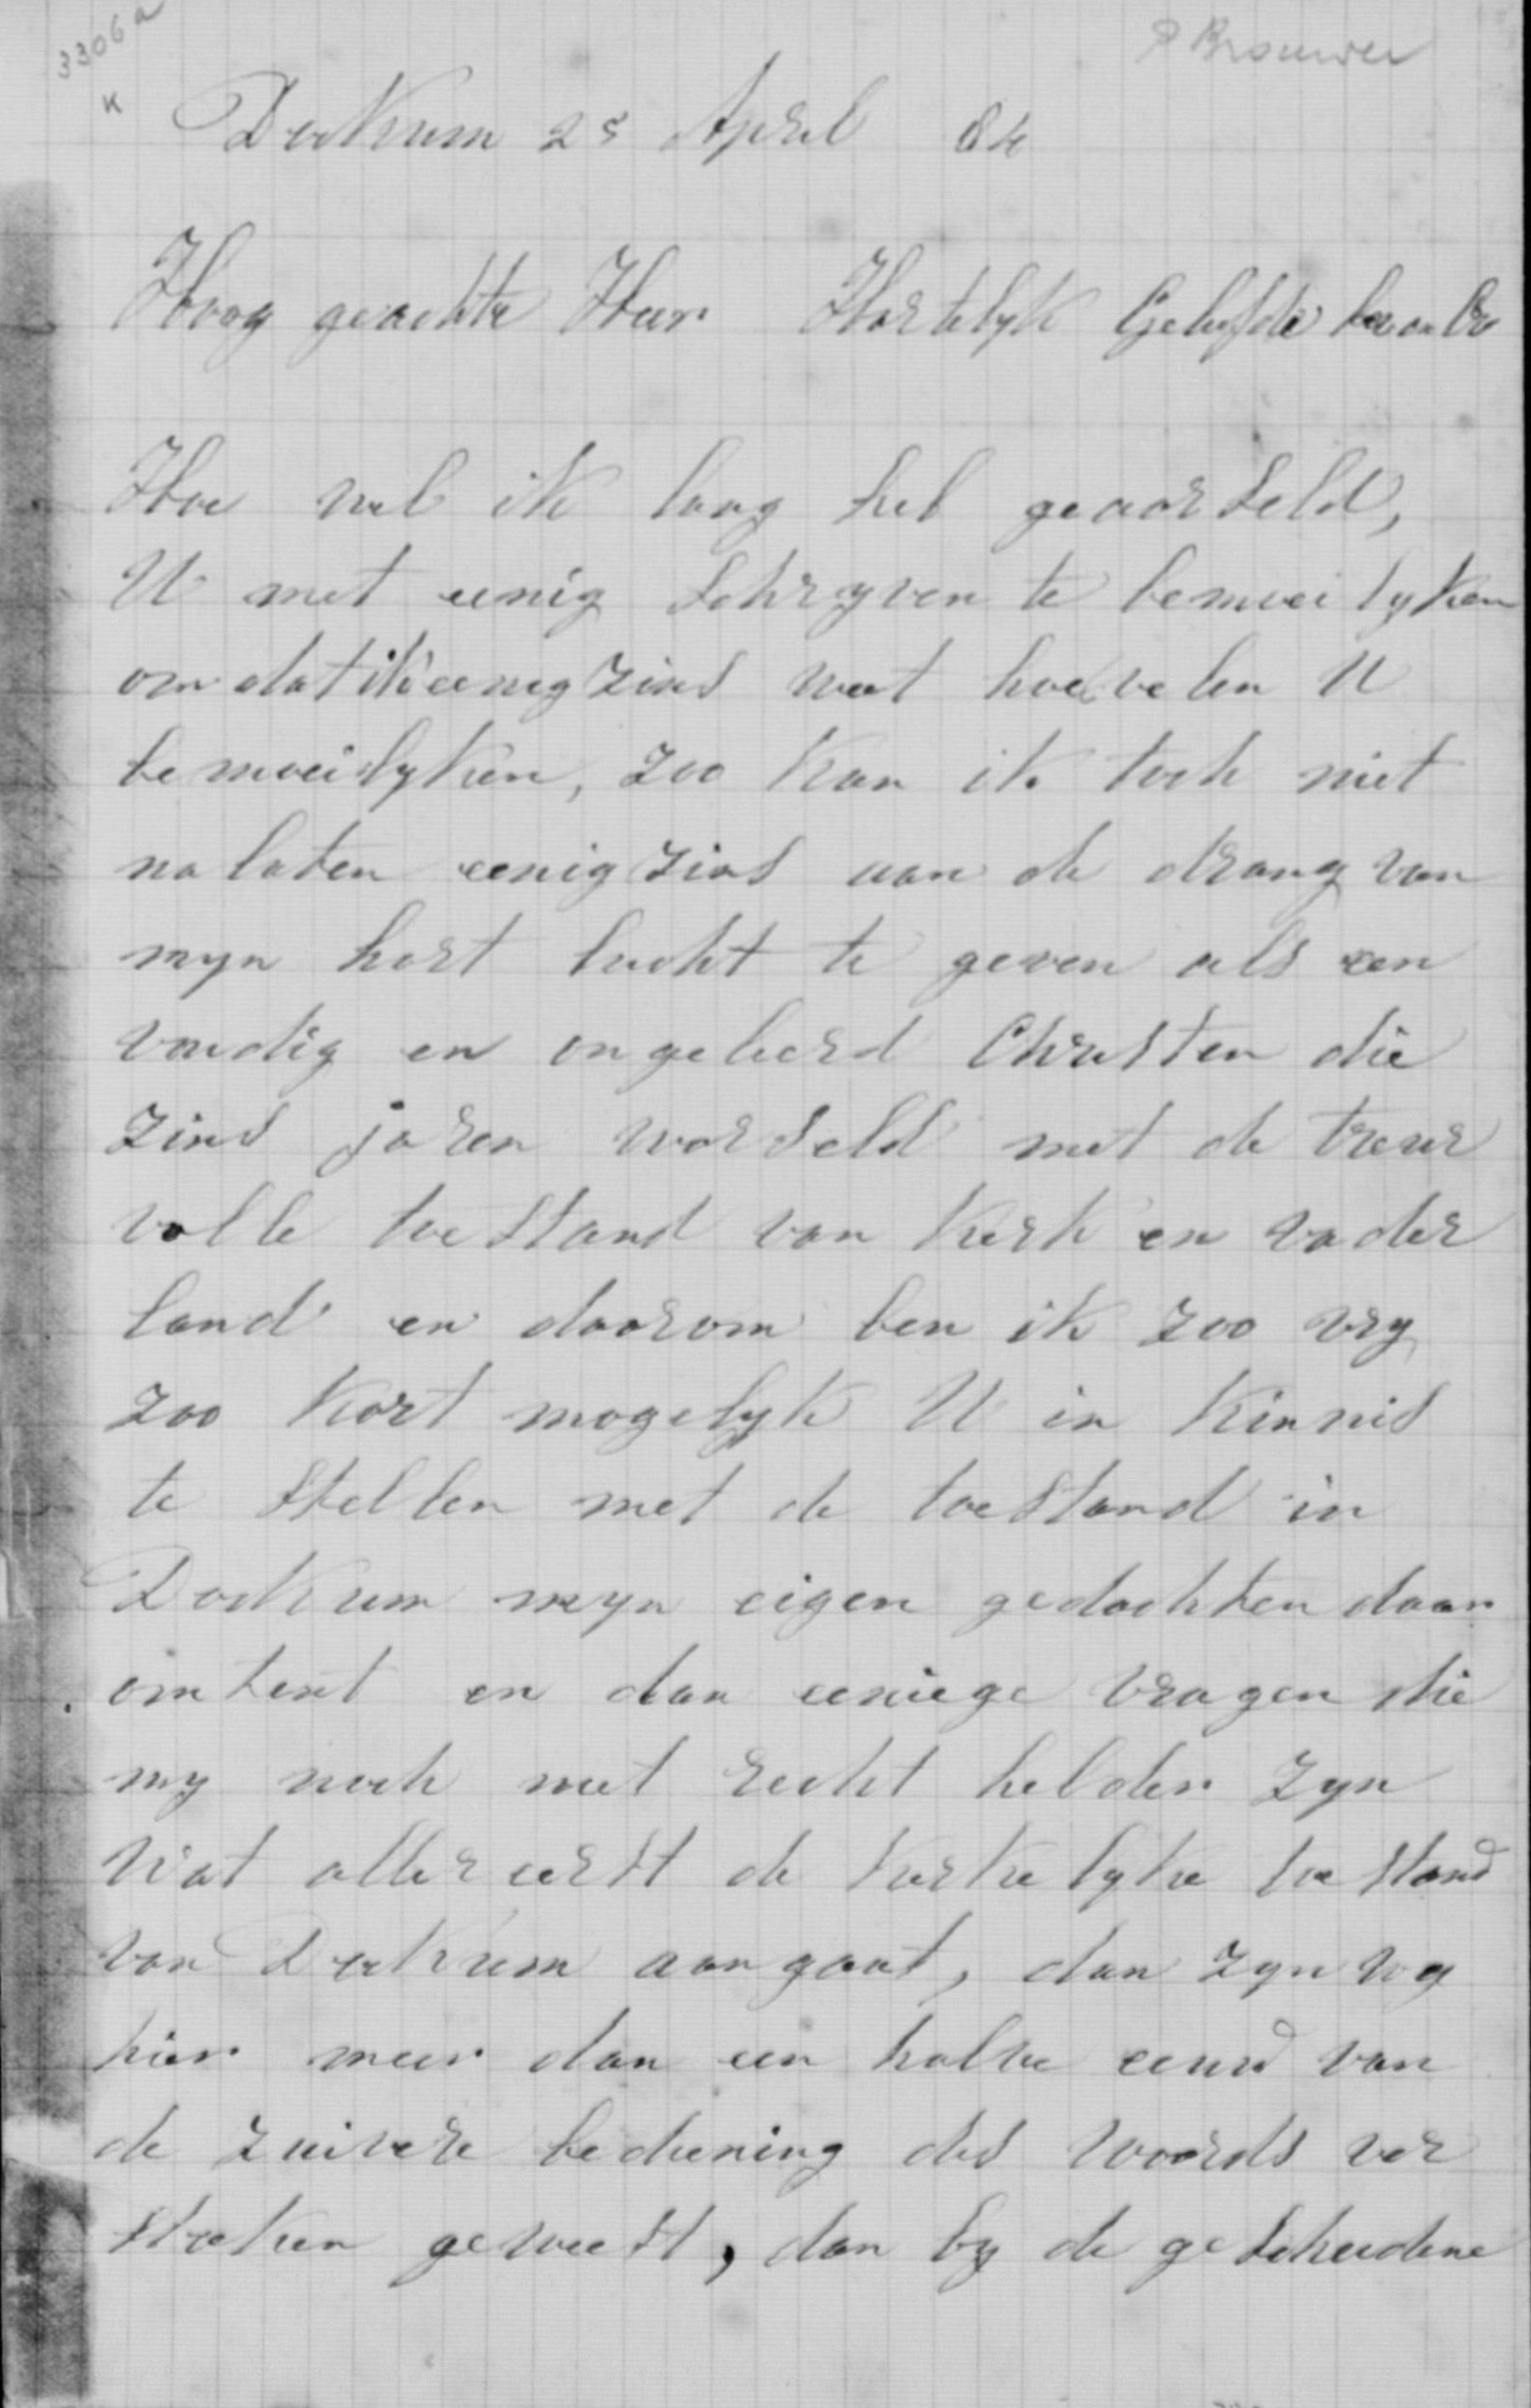 3306a
K
P Brouwer
Dockum 25 April 84
Hoog geachte Heer Hartelyk Geliefde
Hoe wel ik lang heb geaarseld,
U met eenig Schryven te bemoeilyken
om dat ik eenigzins weet hoe velen U
bemoeilyken, zoo kan ik toch niet
na laten eenigzins aan de drang van
myn hart lucht te geven als een
voudig en ongeleerd Christen die
zins jaren worseld met de treur
volle toe stand van Kerk en vader
land en daarom ben ik zoo vry
zoo kort mogelyk U in kinnis
te stellen met de toestand in
Dockum myn eigen gedachten daar
omtent en dan eeniege vragen die
my noch niet recht helder zyn
Wat aller eerst de kerke lyke toe stand
van Dockum aangaat, dan zyn wy
hier meer dan een halve eeuw van
de zuivere bediening des woords ver
stoken geweest, dan by de gescheidene